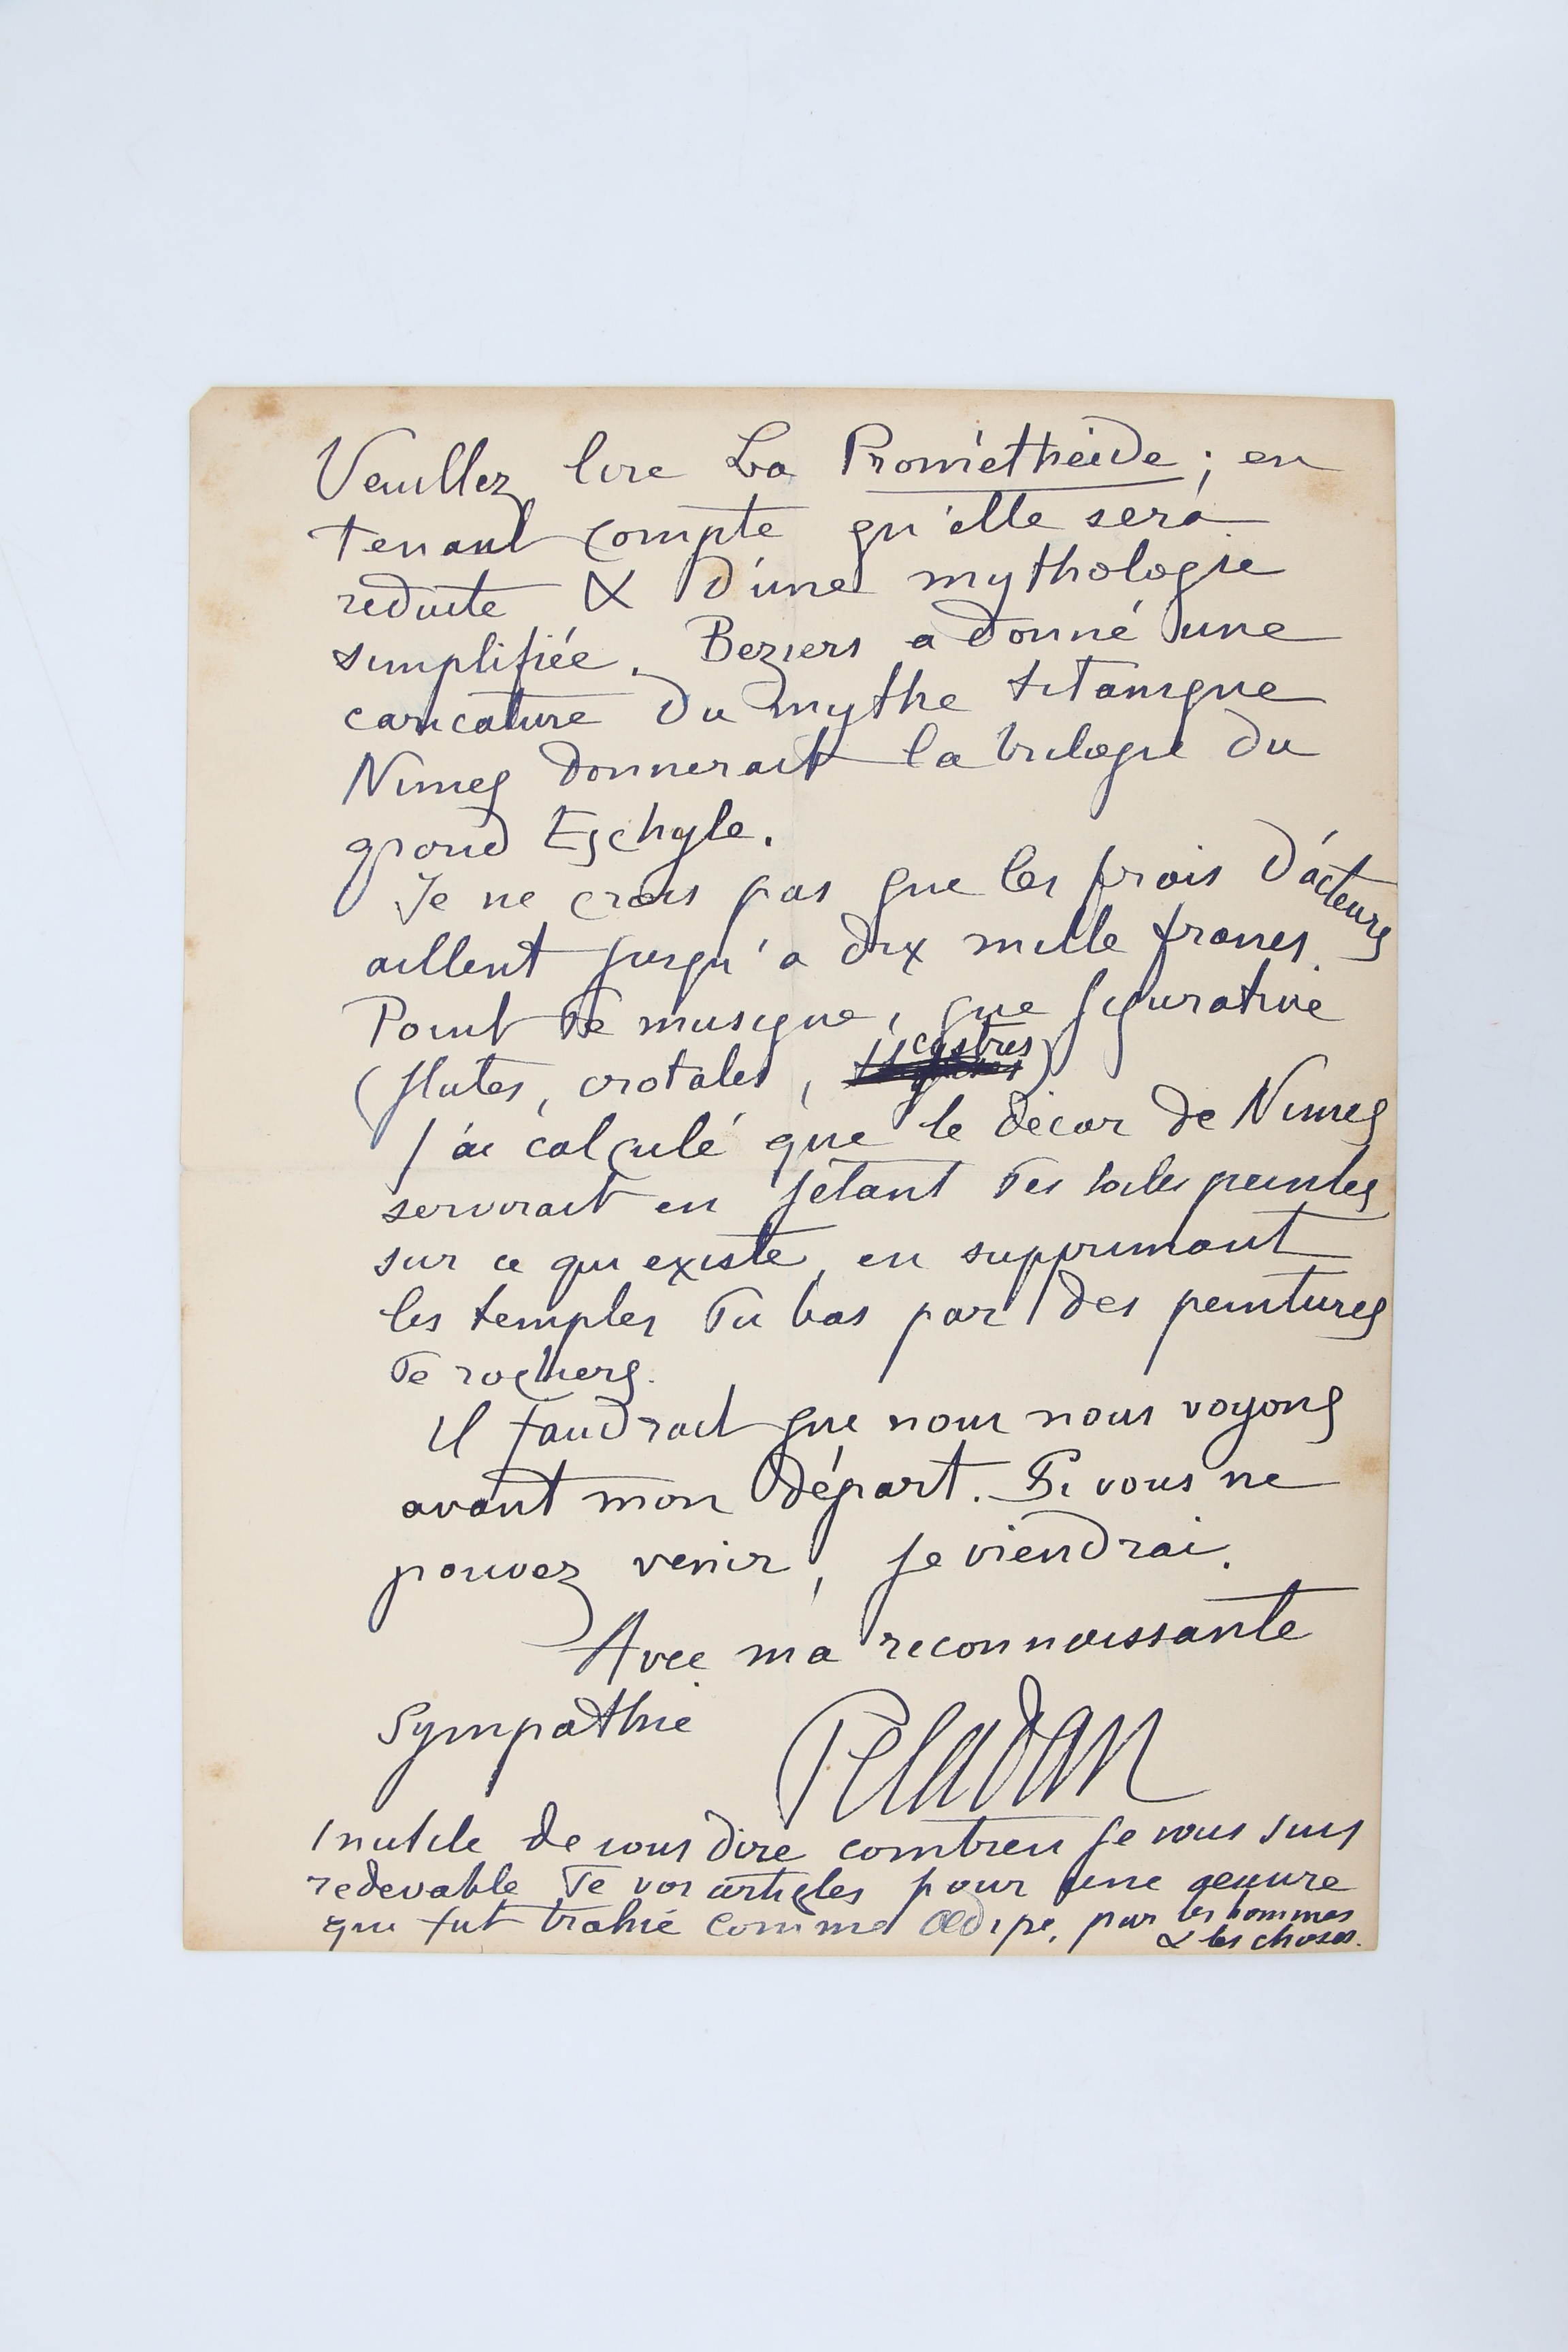 Veuillez lire La Prométhéide ; en
tenant compte qu'elle sera
reduite & d'une mythologie
simplifiée. Beziers a donné une
caricature du mythe titanique
Nimes donnerait la trilogie du
grand Eschyle.
Je ne crois pas que les frais d'acteurs
aillent jusqu'a dix mille francs.
Point de musique, que figurative
(flutes, crotales, cystres)
J'ai calculé que le décor de Nimes
servirait en jétant des toiles peintes
sur ce qui existe, en supprimant
les temples du bas par des peintures
de rochers.
Il faudrait que nous nous voyons
avant mon départ. Si vous ne
pouvez venir, je viendrai.
Avec ma reconnaissante
sympathie Peladan
Inutile de vous dire combien je vous suis
redevable de vos articles pour une œuvre
qui fut trahie comme Œdipe, par les hommes
& les choses.